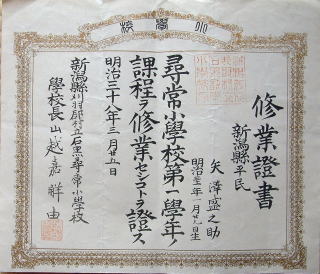 小學校
修業證書
新潟縣平民
矢澤盛之助
明治三十一年一月廿九日生
尋常小學校第一學年ノ
課程ヲ修業セシコトヲ證ス
明治三十八年三月廿五日
新潟縣刈羽郡村立石黑尋常小學校
學校長山越嘉祥由